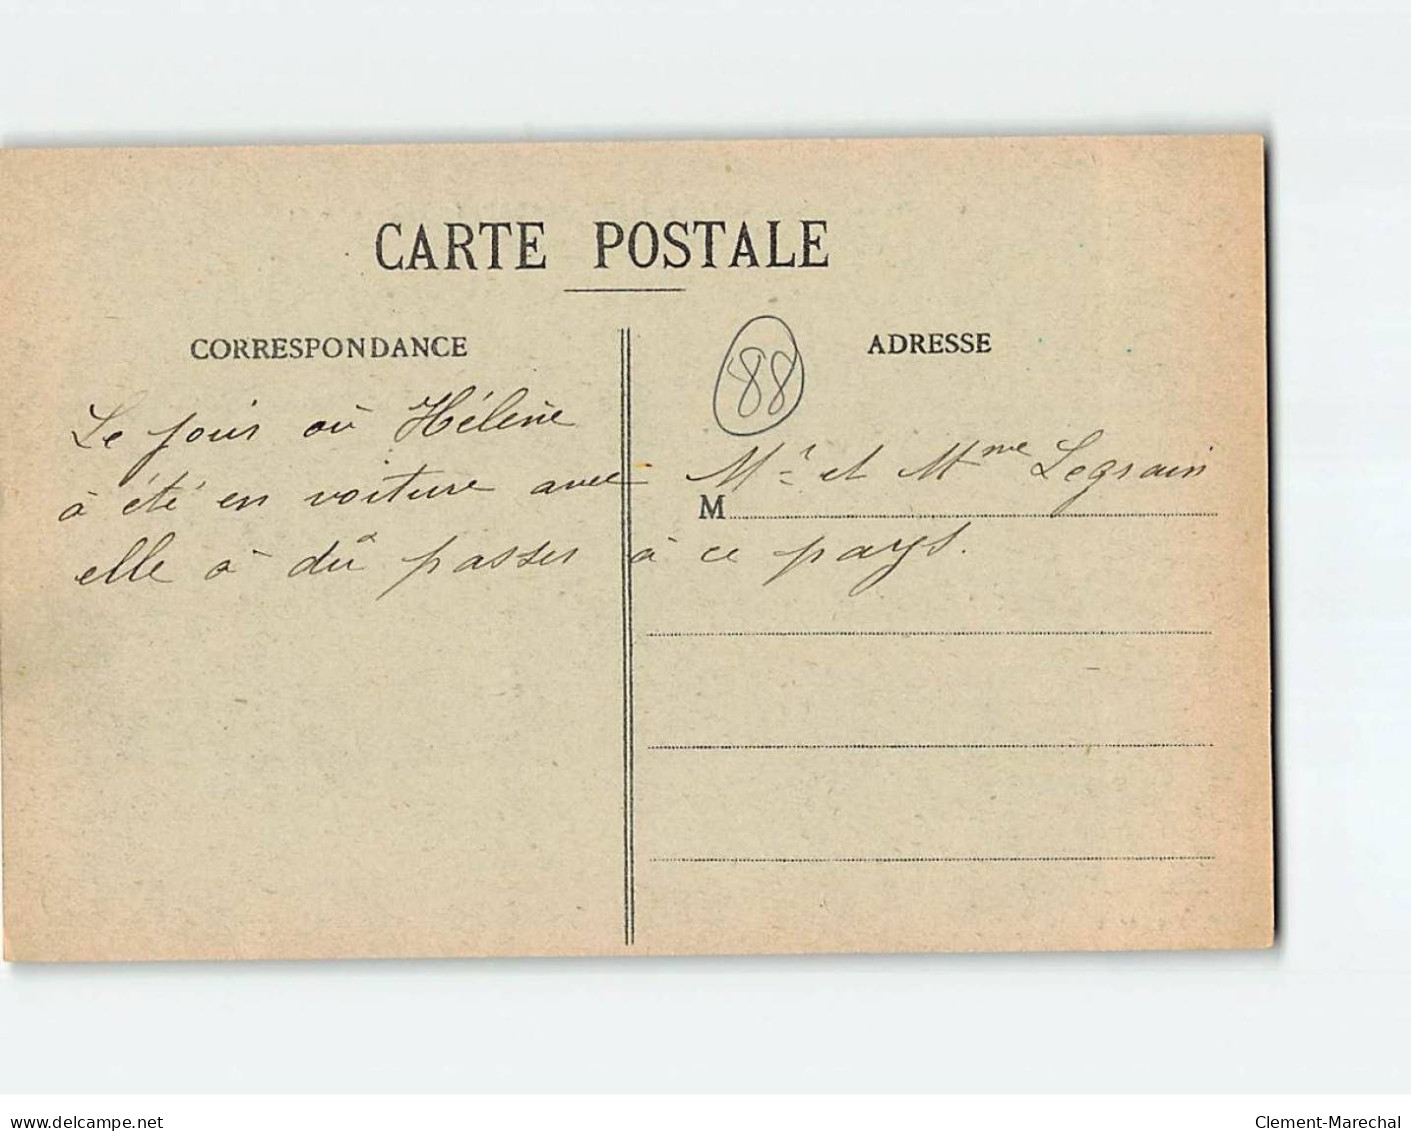 CARTE POSTALE
CORRESPONDANCE
88
ADRESSE
Le jour où Hélène
à été en voiture avec Mr et Mme Legrain
M
elle à dû passer à ce pays.
delcampe.net
Clement-Marechal